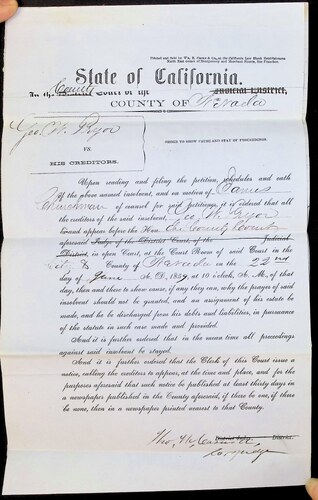 Printed and sold by Wm. B. Cooke & Co., at the California Law Blank Establishment
North East corner of Montgomery and Merchant Streets, San Francisco
State of California.
County
In the District Court of the Judicial District,
COUNTY OF Nevada
Geo. W. Pryor
VS.
HIS CREDITORS.
ORDER TO SHOW CAUSE AND STAY OF PROCEEDINGS
Upon reading and filing the petition, schedules and oath
of the above named insolvent, and on motion of
of counsel for said petitioner, it is ordered that all
the creditors of the said insolvent, Geo. W. Pryor
be and appear before the Hon. the County Court
aforesaid Judge of the District Court, of the Judicial
District, in open Court, at the Court Room of said Court in the
City & County of Nevada on the 22nd
day of June A. D. 1859, at 10 o'clk, A. M., of that
day, then and there to show cause, if any they can, why the prayer of said
insolvent should not be granted, and an assignment of his estate be
made, and he be discharged from his debts and liabilities, in pursuance
of the statute in such case made and provided.
And it is further ordered that in the mean time all proceedings
against said insolvent be stayed.
And it is further ordered that the Clerk of this Court issue a
notice, calling the creditors to appear, at the time and place, and for the
purposes aforesaid that such notice be published at least thirty days in
a newspaper published in the County aforesaid, if there be one, if there
be none, then in a newspaper printed nearest to that County.
District Judge District.
Co. Judge